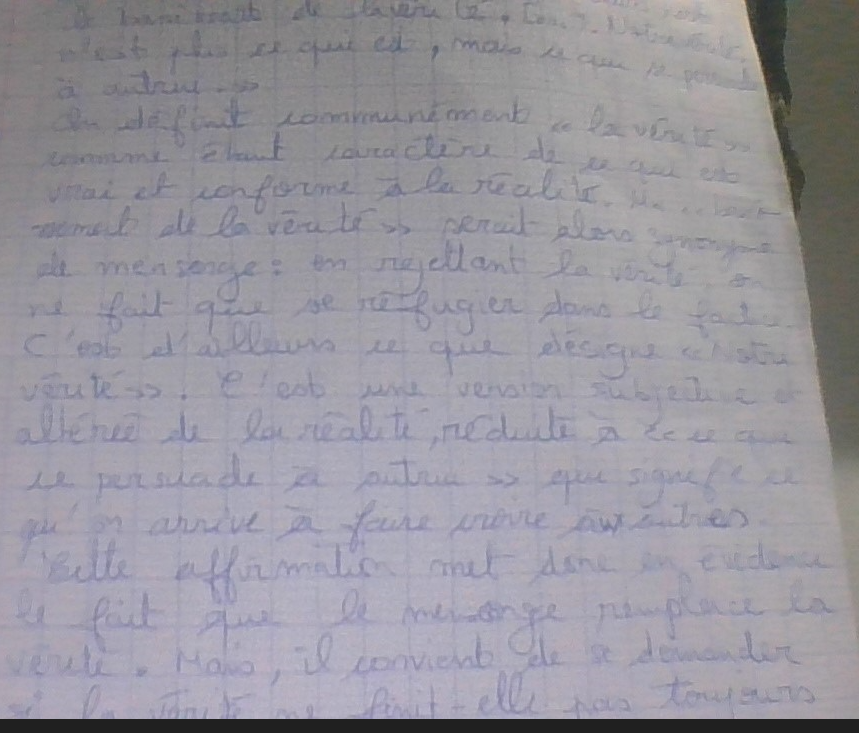 de la vérité. [...]. Notre vérité,
n'est plus ce qui est, mais ce que se persuade
à autrui. »
On définit communément « la vérité »
comme étant caractère de ce qui est
vrai et conforme à la réalité. Le
de la vérité » serait alors synonyme
de mensonge : en rejettant la vérité, on
ne fait que se réfugier dans le faux.
C'est d'ailleurs ce que décigne « Notre
vérité ». C'est une version subjective et
altérée de la réalité, réduite à « ce que
se persuade à autrui » qui signifie ce
qu'on arrive à faire croire aux autres.
Cette affirmation met donc en évidence
le fait que le mensonge remplace la
vérité. Mais, il convient de se demander
si la vérité ne finit-elle pas toujours